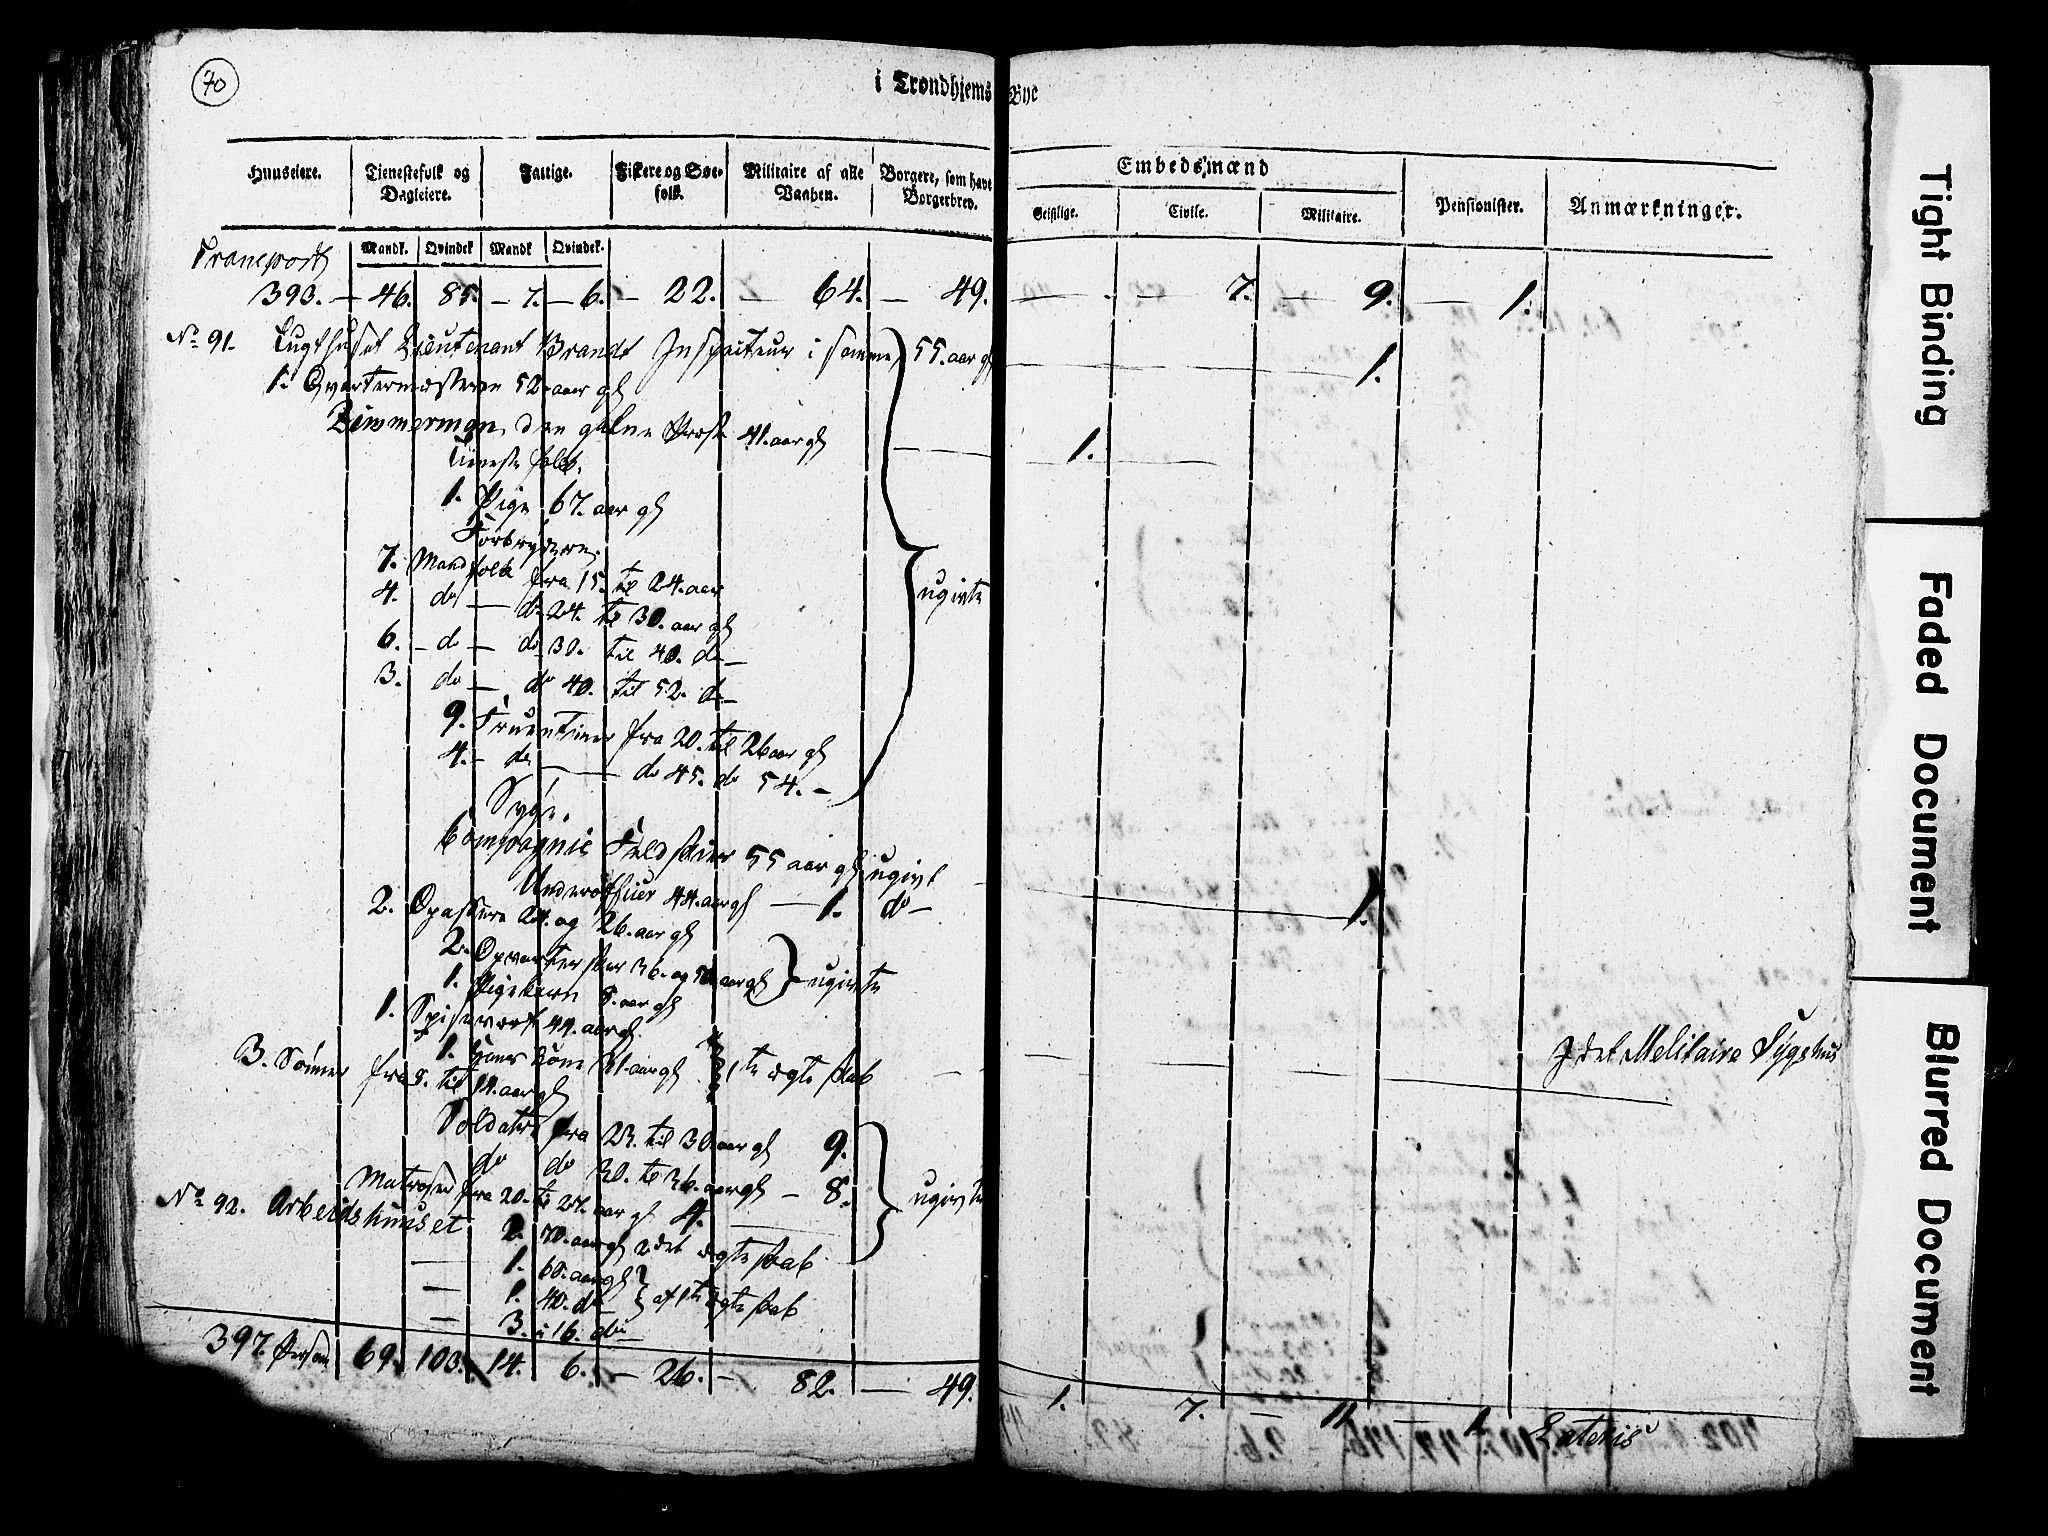 70
i Trondhjems Bye
Huuseiere. Tienestefolk og Dagleiere. Fattige. Fiskere og Søe-folk. Militaire af alle Vaaben. Borgere, som have Borgerbrev. Embedsmænd Pensionister. Anmærkninger.
Geistlige. Civile. Militaire.
Mandk. Qvindek Mandk Qvindek.
Transport
393. — 46. 85. — 7. — 6. — 22. — 64. — 49. — 7. — 9. — 1.
No 91. Tugthuset Lieutenant Brandt Inspecteur i samme, 55. aar gl 1.
1. Qvartermesteren 52. aar gl
Zimmerman, den galne Præst 41. aar gl 1.
Tieneste folk.
1. Pige 67. aar gl
Forbrydere.
7. Mandfolk fra 15. til 24. aar
4. do — do 24. til 30. aar gl ugivte
6. — do — do 30. til 40. do —
3. do — do 40. til 52. do —
9. Fruentimer fra 20. til 26 aar gl
4. — do — do 45. do 54. —
Syge.
Compagnie Feldskier 55 aar gl ugivt
Underofficier 44. aar gl — 1. do — 1.
2. Opassere 24. og 26. aar gl
2. Opvartersker 36. og 50. aar gl ugivte
1. Pigebarn 8. aar gl
1. Spisevært 44. aar gl
1. Hans Kone 41. aar gl 1te ægteskab
3. Sønner fra 8. til 14. aar gl
I det Melitaire Sygehus
Soldater fra 23. til 30. aar gl 9.
do do 30. til 36. aar gl — 8. ugivte
Matroser fra 20. til 24. aar gl 4.
No 92. Arbeidshuuset
2. 70. aar gl 2det ægteskab
— 1. 60. aar gl
— 1. 40. do — af 1te ægteskab
— 3. i 16. do
397. Person 69. 103. 14. 6. — 26. — 82. — 49. 1. 7. — 11. — 1. Lateris
Tight Binding
Faded Document
Blurred Document